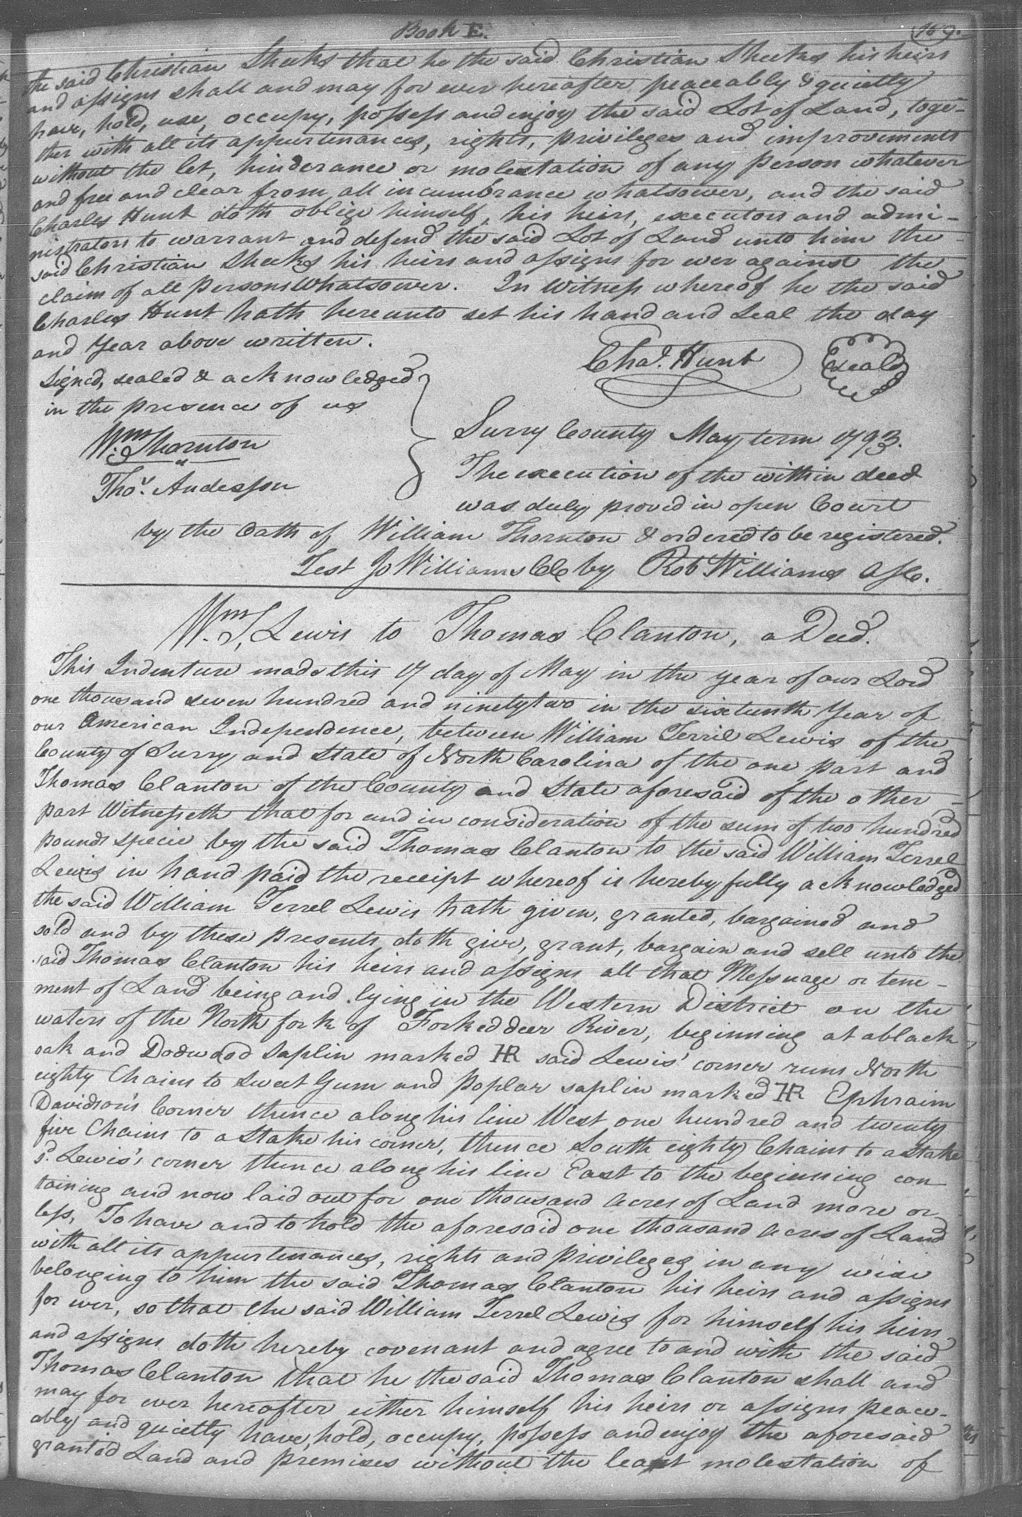 Book E.
the said Christian Sheeks that he the said Christian Sheeks his heirs
and assigns shall and may for ever hereafter, peaceably & quietly
have, hold, use, occupy, possess and enjoy the said Lot of Land, toge-
ther with all its appurtenances, rights, privileges and improvements
without the let, hinderance or molestation of any Person whatever
and free and clear from all incumbrance whatsoever, and the said
Charles Hunt doth oblige himself, his heirs, executors and admi-
nistrators to warrant and defend the said Lot of Land unto him the
said Christian Sheeks his heirs and assigns for ever against the
claim of all Persons Whatsoever. In Witness whereof he the said
Charles Hunt hath hereunto set his hand and Seal the day
and Year above written.
Chas. Hunt (seal)
Signed, sealed & acknowledged
in the presence of us
Wm. Thornton
Thos. Anderson
Surry County May term 1793.
The execution of the within deed
was duly proved in open Court
by the Oath of William Thornton & ordered to be registered.
Test Jo Williams CC by Rob Williams
Wm. T. Lewis to Thomas Clanton, a Deed.
This Indenture made this 17 day of May in the year of our Lord
one thousand seven hundred and ninety two in the sixteenth Year of
our American Independence, between William Terril Lewis of the
County of Surry and State of North Carolina of the one part and
Thomas Clanton of the County and State aforesaid of the other
part Witnesseth that for and in consideration of the sum of two hundred
pounds specie by the said Thomas Clanton to the said William Terrel
Lewis in hand paid the receipt whereof is hereby fully acknowledged
the said William Terrel Lewis hath given, granted, bargained and
sold and by these presents, doth give, grant, bargain and sell unto the
said Thomas Clanton his heirs and assigns all that Messuage or tene-
ment of Land being and lying in the Western District on the
waters of the North fork of Forked deer River, beginning at a black
oak and Dodwood saplin marked HR said Lewis' corner runs North
eighty Chains to Sweet Gum and Poplar saplin marked HR Ephraim
Davidson's Corner thence along his line West one hundred and twenty
five Chains to a Stake his corner, thence South eighty Chains to a stake
sd. Lewis's corner thence along his line East to the beginning con-
taining and now laid out for one thousand acres of Land more or
less, To have and to hold the aforesaid one thousand acres of Land
with all its appurtenances, rights and Privileges in any wise
belonging to him the said Thomas Clanton his heirs and assigns
for ever, so that the said William Terrel Lewis for himself his heirs
and assigns doth hereby covenant and agree to and with the said
Thomas Clanton that he the said Thomas Clanton shall and
may for ever hereafter either himself his heirs or assigns peace-
ably and quietly have, hold, occupy, possess and enjoy the aforesaid
granted Land and premises without the least molestation of